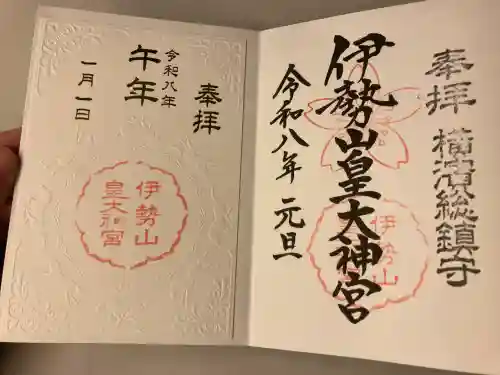 奉拝
横濱総鎮守
伊勢山皇大神宮
伊勢山
令和八年 元旦
奉拝
令和八年
午年
一月一日
伊勢山
皇大神宮